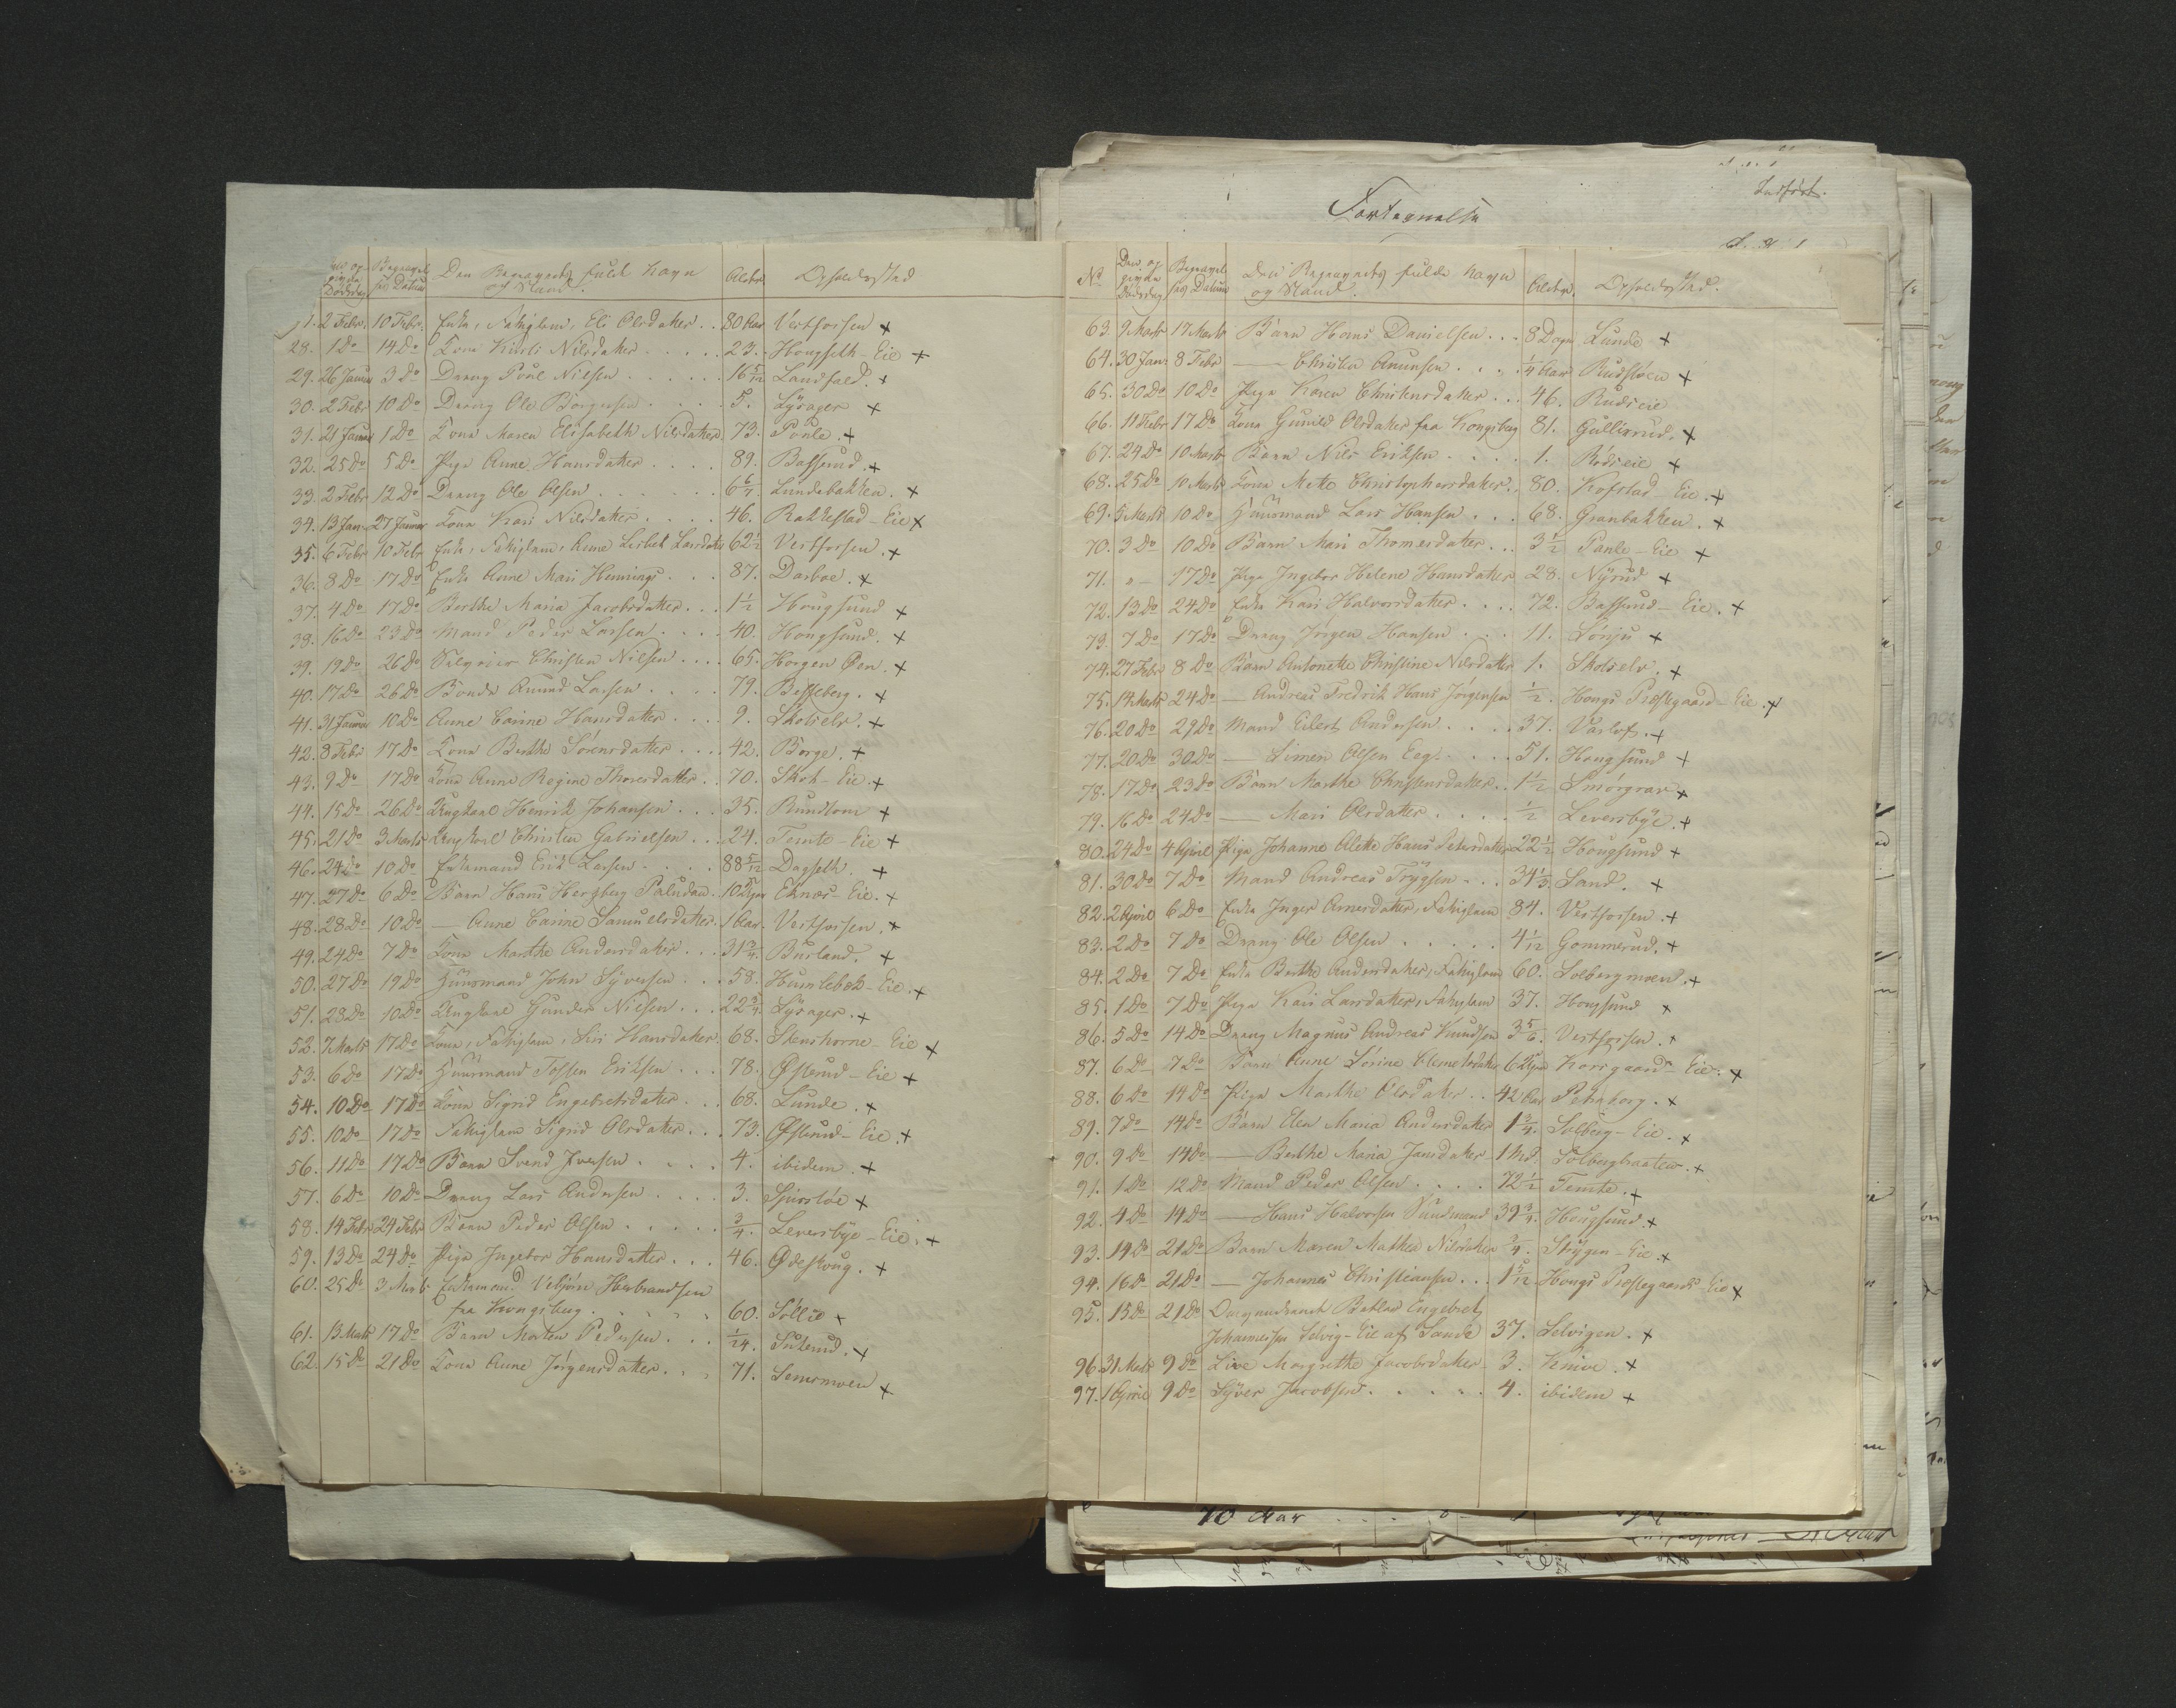 Den op-
givne
Dødsdag
Begravel
ses Datum
Den Begravedes fulde Navn
og Stand.
Alder
Opholdssted
1. 2 Febr. 10 Febr. Enke, Fattiglem, Eli Olsdatter . . 80 Aar Vestfossen +
28. 1 Do 14 Do Kone Kirsti Nilsdatter . . . . . 23. Hougseth - Eie +
29. 26 Januar 3 Do Dreng Poul Nielsen . . . . . . 16 5/12 Landfald. +
30. 2 Febr 10 Do Dreng Ole Børgersen . . . . 5. Lÿsager +
31. 21 Januar 1 Do Kone Maren Elisabeth Nilsdatter. 73. Poule. +
32. 25 Do 5 Do Pige Anne Hansdatter . . . . 89. Bassund. +
33. 2 Febr 12 Do Dreng Ole Olsen . . . . . . 6 6/7. Lundebakken. +
34. 13 Jan. 27 Januar Kone Kari Nilsdatter . . . . 46. Rakkestad - Eie +
35. 6 Febr 10 Febr Enke, Fattiglem, Anne Lisbet Larsdatter 62 1/2 Vestfossen. +
36. 8 Do 17 Do Enke Anne Mari Hennings . . . 87. Darboe. +
37. 4 Do 17 Do Berthe Maria Jacobsdatter . . . 1 1/2 Hougsund +
38. 16 Do 23 Do Mand Peder Larsen . . . . 40. Hougsund. +
39. 19 Do 26 Do Selveier Christen Nilsen . . . . 65. Horgen Øen. +
40. 17 Do 26 Do Bonde Amund Larsen . . . . 79. Besseberg. +
41. 31 Januar 10 Do Anne Carine Hansdatter . . . . 9. Skotselv. +
42. 8 Febr 17 Do Kone Berthe Sørensdatter . . . . 42. Borge. +
43. 9 Do 17 Do Kone Anne Regine Thoresdatter . . 70. Skoh - Eie. +
44. 15 Do 26 Do Ungkarl Henrik Johansen . . . 35. Rundtom +
45. 21 Do 3 Marts Ungkarl Christen Gabrielsen . . . 24. Temte - Eie +
46. 24 Do 10 Do Enkemand Erik Larsen . . . . 88 5/12 Dagseth. +
47. 27 Do 6 Do Barn Hans Herzberg Paludan. 10 Dage Eknes - Eie. +
48. 28 Do 10 Do — Anne Carine Samuelsdatter. 1 Aar. Vestfossen. +
49. 24 Do 7 Do Kone Marthe Andersdatter . . . 31 3/4. Burland. +
50. 27 Do 19 Do Huusmand John Sÿversen . . . 58. Humlebek - Eie. +
51. 28 Do 10 Do Ungkarl Gunder Nielsen . . . 22 3/4. Lÿsager. +
52. 7 Marts 17 Do Kone, Fattiglem, Siri Hansdatter. 68. Stenshorne - Eie +
53. 6 Do 17 Do Huusmand Tossen Eriksen . . . 78. Østerud - Eie +
54. 10 Do 17 Do Kone Sigrid Engebretsdatter . . . 68. Lunde. +
55. 10 Do 17 Do Fattiglem Sigrid Olsdatter . . . 73. Østerud - Eie. +
56. 11 Do 17 Do Barn Svend Iversen . . . . 4. ibidem. +
57. 6 Do 10 Do Dreng Lars Andersen . . . . 3. +
58. 14 Febr 24 Febr Barn Peder Olsen . . . . . 3/4. Leversbÿe - Eie. +
59. 13 Do 24 Do Pige Ingebor Hansdatter . . . 46. Ødeskoug. +
60. 25 Do 3 Marts Enkemand Vebjørn Herbrandsen
fra Kongsberg . . . . . 60. Sollie +
61. 13 Marts 17 Do Barn Morten Pedersen . . . 1/24. Suterud. +
62. 15 Do 21 Do Kone Anne Jørgensdatter . . . 71. Semsmoen +
Fortegnelse
Indført.
No
Den op-
givne
Dødsdag
Begravel
ses Datum
Den Begravedes fulde Navn
og Stand.
Alder.
Opholdssted.
63. 9 Marts 17 Marts Barn Hans Danielsen . . . 8 Dage Lunde +
64. 30 Jan. 8 Febr — Christen Amunsen . . . . 1/4 Aar Rudsløen +
65. 30 Do 10 Do Pige Karen Christensdatter . . . 46. Rudseie
66. 11 Febr 17 Do Kone Gunild Olsdatter fra Kongsberg 81. Gullixrud. +
67. 24 Do 10 Marts Barn Nils Eriksen . . . . 1. Rødseie +
68. 25 Do 10 Marts Kone Mette Christophersdatter . . 80. Hofstad - Eie. +
69. 5 Marts 10 Do Huusmand Lars Hansen . . . 68. Granbakken. +
70. 3 Do 10 Do Barn Mari Thomesdatter . . . 3 1/2 Poule - Eie +
71. " - 17 Do Pige Ingebor Helene Hansdatter 28. Nÿrud +
72. 13 Do 24 Do Enke Kari Halvorsdatter . . . . 72. Bassund - Eie. +
73. 7 Do 17 Do Dreng Jørgen Hansen . . . 11. Lonju +
74. 27 Febr 8 Do Barn Antonette Christine Nilsdatter 1. Skotselv. +
75. 14 Marts 24 Do — Andreas Fredrik Hans Jørgensen 1/2. Hougs Præstegaard - Eie. +
76. 20 Do 29 Do Mand Eilert Andersen . . . . 37. Varlof. +
77. 20 Do 30 Do — Simen Olsen Eeg . . . . 51. Hougsund +
78. 17 Do 23 Do Barn Marthe Christensdatter . . 1 1/2 Smørgrav +
79. 16 Do 24 Do — Mari Olsdatter . . . . 1/2 Leversbÿe. +
80. 24 Do 4 April Pige Johanne Aletke Hans Petersdatter 22 1/2 Hougsund +
81. 30 Do 7 Do Mand Andreas Trÿgsen . . . 34 1/3. Sand. +
82. 2 April 6 Do Enke Inger Arnesdatter, Fattiglem 84. Vestfossen. +
83. 2 Do 7 Do Dreng Ole Olsen . . . . . 4 1/12 Gommerud. +
84. 2 Do 7 Do Enke Berthe Andersdatter, Fattiglem 60. Solbergmoen. +
85. 1 Do 7 Do Pige Kari Larsdatter, Fattiglem 37. Hougsund +
86. 5 Do 14 Do Dreng Magnus Andreas Knudsen 3 5/6. Vestfossen. +
87. 6 Do 7 Do Barn Anne Sørine Clemetsdatter 6 Dage Korsgaard - Eie. +
88. 6 Do 14 Do Pige Marthe Olsdatter . . 42 Aar Petersborg. +
89. 7 Do 14 Do Barn Elen Maria Andersdatter 1 3/4. Solberg - Eie. +
90. 9 Do 14 Do — Berthe Maria Jansdatter 1 Md. Solbergbraaten. +
91. 1 Do 12 Do Mand Peder Olsen . . . . 72 1/2 Temte. +
92. 4 Do 14 Do — Hans Halvorsen Sundmand 39 3/4. Hougsund. +
93. 14 Do 21 Do Barn Maren Mathea Nilsdatter 3/4. Strÿgen - Eie. +
94. 16 Do 21 Do — Johannes Christiansen . . . 1 5/12 Hougs Præstegaards - Eie +
95. 15 Do 21 Do Omvandrende Betler Engebret
Johannessen Selvig - Eie af Sande 37. Selvigen. +
96. 31 Marts 9 Do Live Margrethe Jacobsdatter 3. Knive. +
97. 1 April 9 Do Sÿver Jacobsen . . . . . 4. ibidem +
70 Aar . . . .